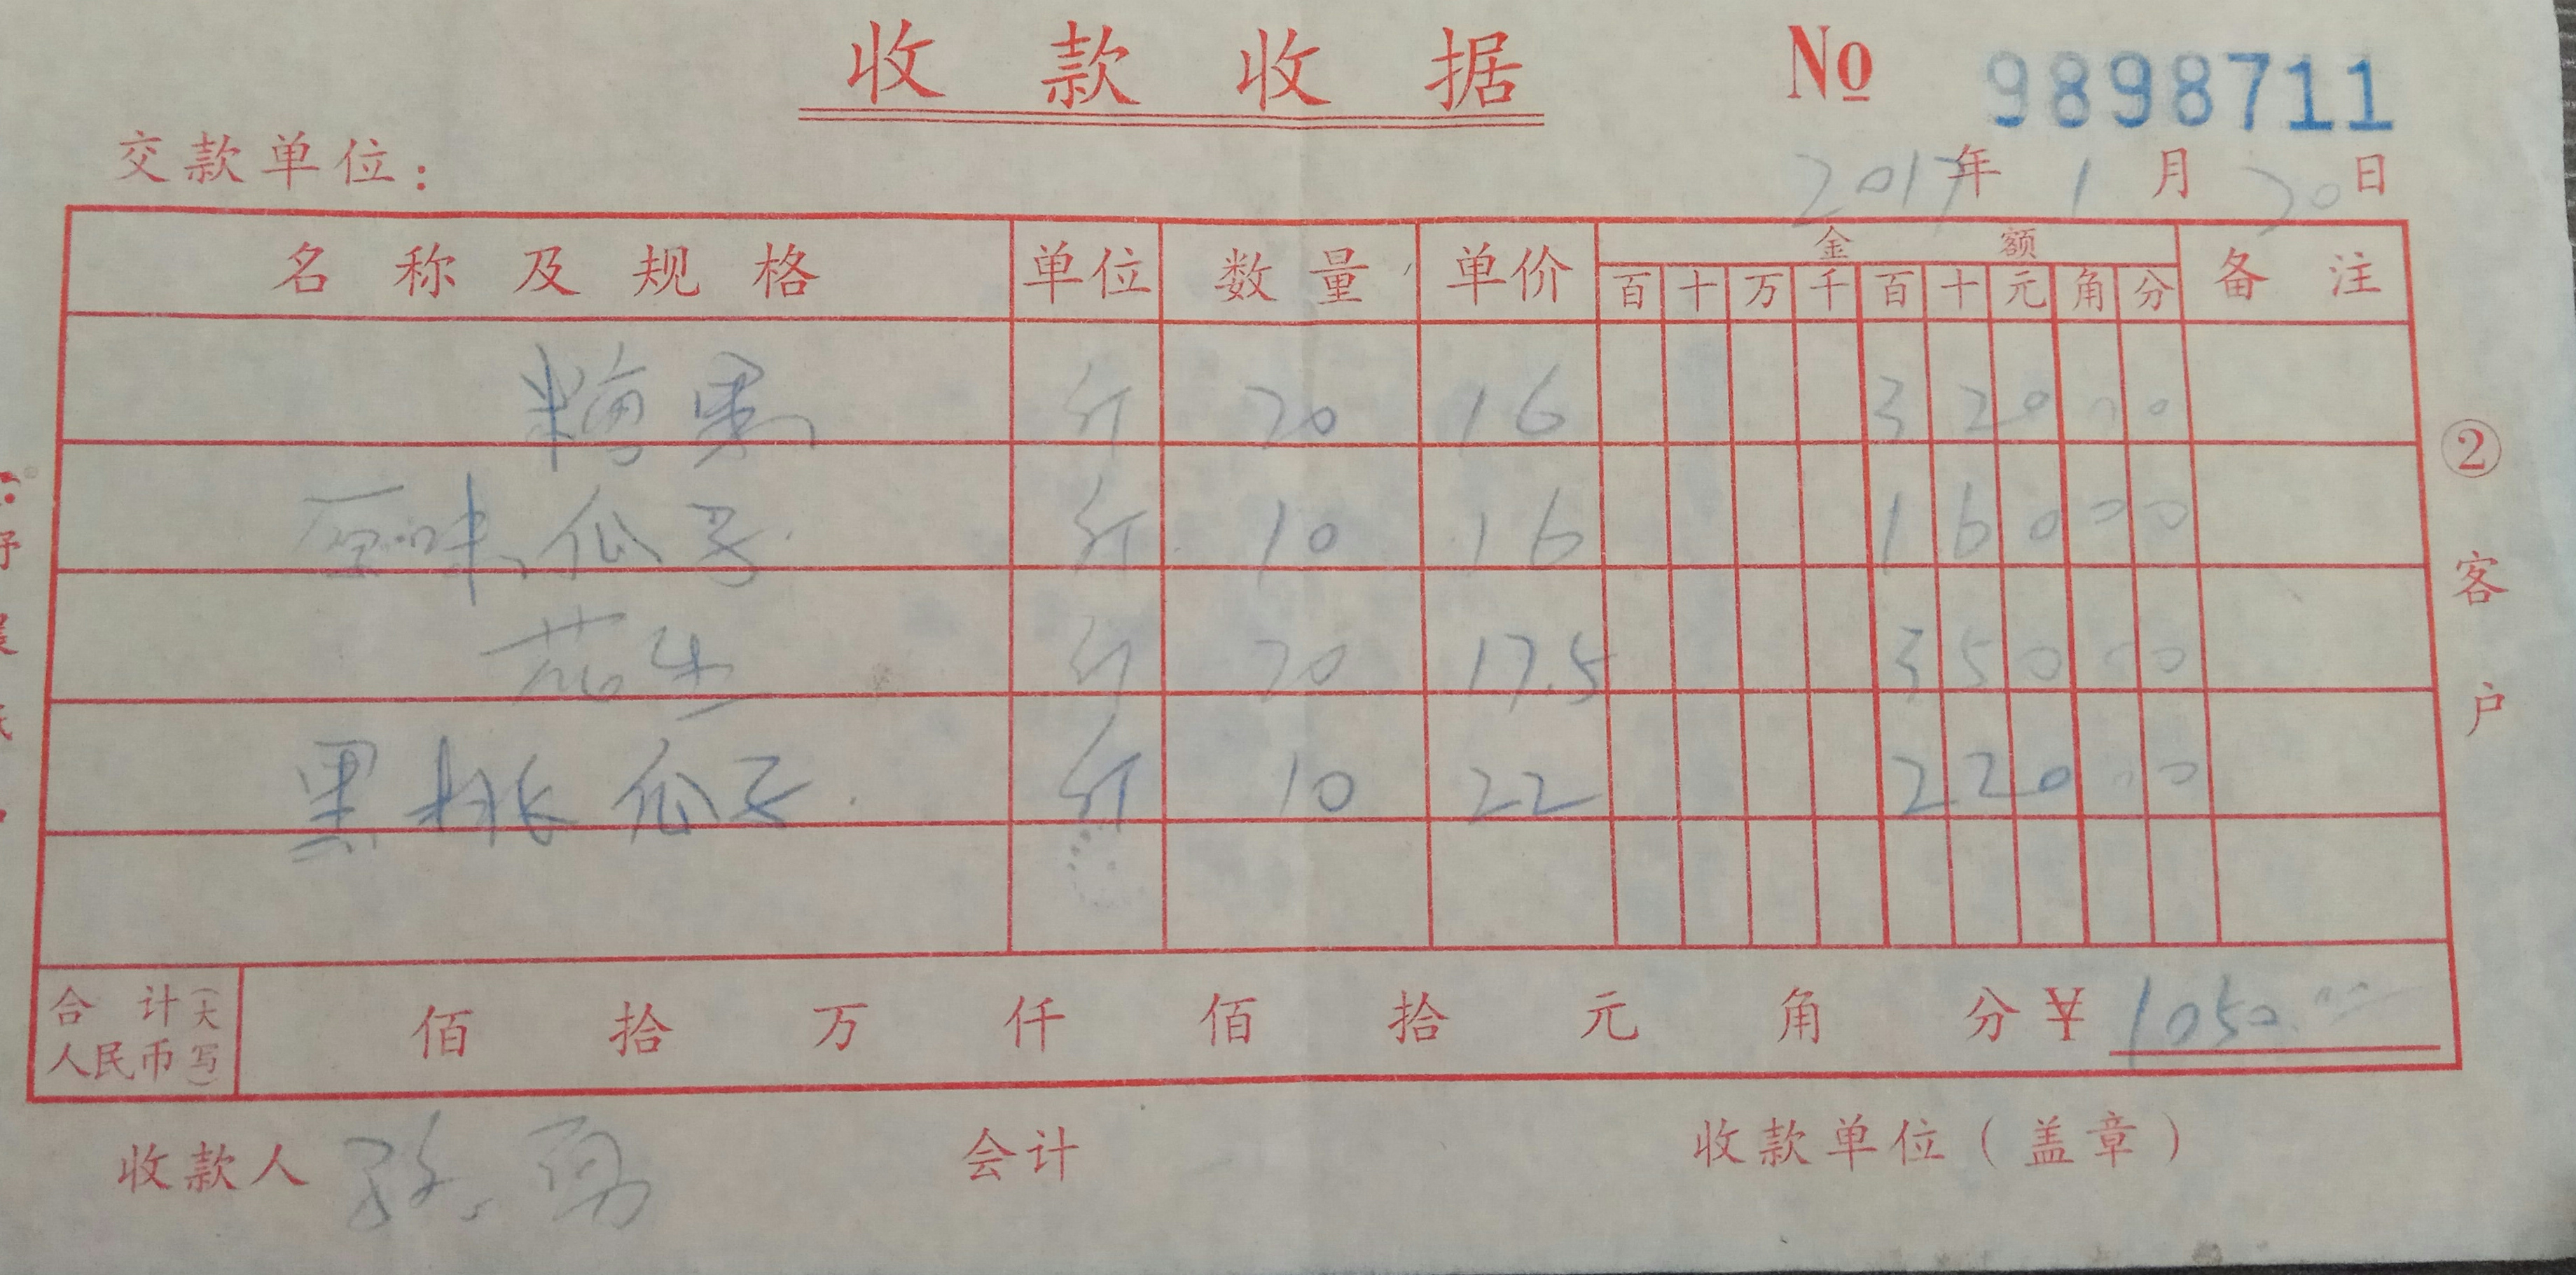 收款收据 No 9898711
交款单位： 2017年1月20日
名称及规格 单位 数量 单价 金额 备注
百 十 万 千 百 十 元 角 分
糖果 斤 20 16 3 2 0 0 0
原味瓜子 斤 10 16 1 6 0 0 0
花生 斤 20 17.5 3 5 0 0 0
黑桃瓜子 斤 10 22 2 2 0 0 0
合计（大写）
人民币 佰 拾 万 仟 佰 拾 元 角 分 ¥ 1050.00
收款人 孙勇 会计 收款单位（盖章）
②客户